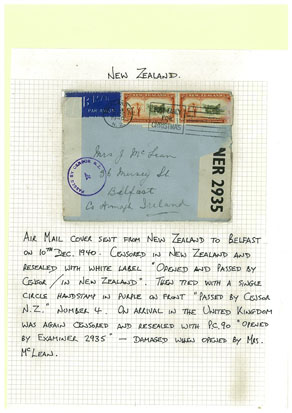 NEW ZEALAND.
PAR AVION
CHRISTMAS
Mrs J McLean
Belfast
Co Armagh Ireland
PASSED BY CENSOR N.Z.
4
NER 2935
AIR MAIL COVER SENT FROM NEW ZEALAND TO BELFAST
ON 10TH DEC. 1940. CENSORED IN NEW ZEALAND AND
RESEALED WITH WHITE LABEL "OPENED AND PASSED BY
CENSOR / IN NEW ZEALAND". THEN TIED WITH A SINGLE
CIRCLE HANDSTAMP IN PURPLE ON FRONT "PASSED BY CENSOR
N.Z." NUMBER 4. ON ARRIVAL IN THE UNITED KINGDOM
WAS AGAIN CENSORED AND RESEALED WITH P.C. 90 "OPENED
BY EXAMINER 2935" – DAMAGED WHEN OPENED BY MRS.
McLEAN.